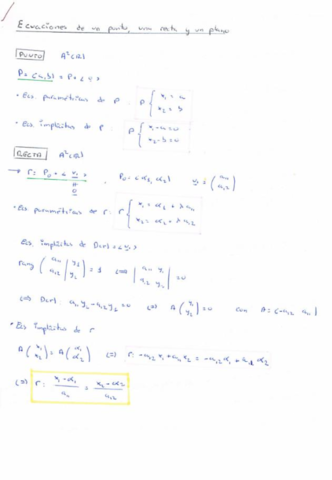 Ecuaciones de un punto, una recta y un plano
PUNTO A²(R)
P = (a,b) = P + < v >
• Ecs. paramétricas de P: P { x₁ = a
x₂ = b
• Ecs. implícitas de P: P { x₁ - a = 0
x₂ - b = 0
RECTA A²(R)
→ r: P₀ + < v₁ > , P₀ = (α₁, α₂) v₁ = ( a₁₁
a₁₂ )
• Ecs paramétricas de r: r { x₁ = α₁ + λ a₁₁
x₂ = α₂ + λ a₁₂
Ecs. implícitas de D(r) = < v₁ >
rang ( a₁₁ y₁
a₁₂ y₂ ) = 1 (=) | a₁₁ y₁
a₁₂ y₂ | = 0
(=) D(r): a₁₁ y₂ - a₁₂ y₁ = 0 (=) A ( y₁
y₂ ) = 0 con A = (-a₁₂ a₁₁)
• Ecs implícitas de r
A ( x₁
x₂ ) = A ( α₁
α₂ ) (=) r: -a₁₂ x₁ + a₁₁ x₂ = -a₁₂ α₁ + a₁₁ α₂
(=) r: x₁ - α₁ / a₁₁ = x₂ - α₂ / a₁₂